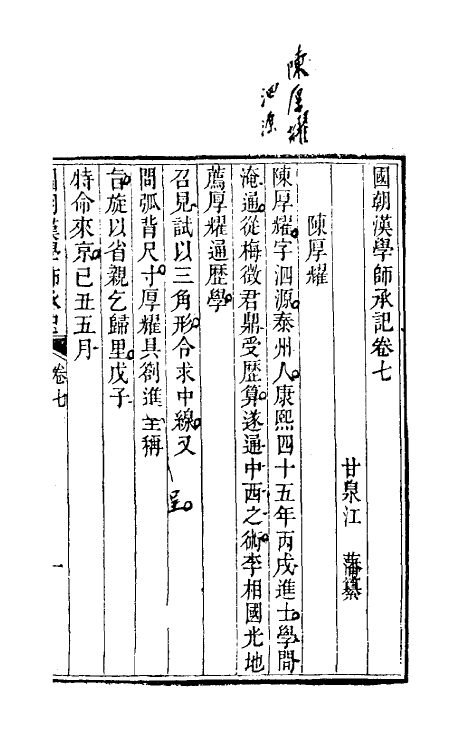 陳厚耀
泗源
國朝漢學師承記卷七
甘泉江 藩纂
陳厚耀
陳厚耀字泗源泰州人康熙四十五年丙戌進士學問
淹通從梅徵君鼎受歷算遂通中西之術李相國光地
薦厚耀通歷學
召見試以三角形令求中線又
問弧背尺寸厚耀具劄進呈稱
旨旋以省親乞歸里戊子
特命來京己丑五月
國朝漢學師承記
卷七
一